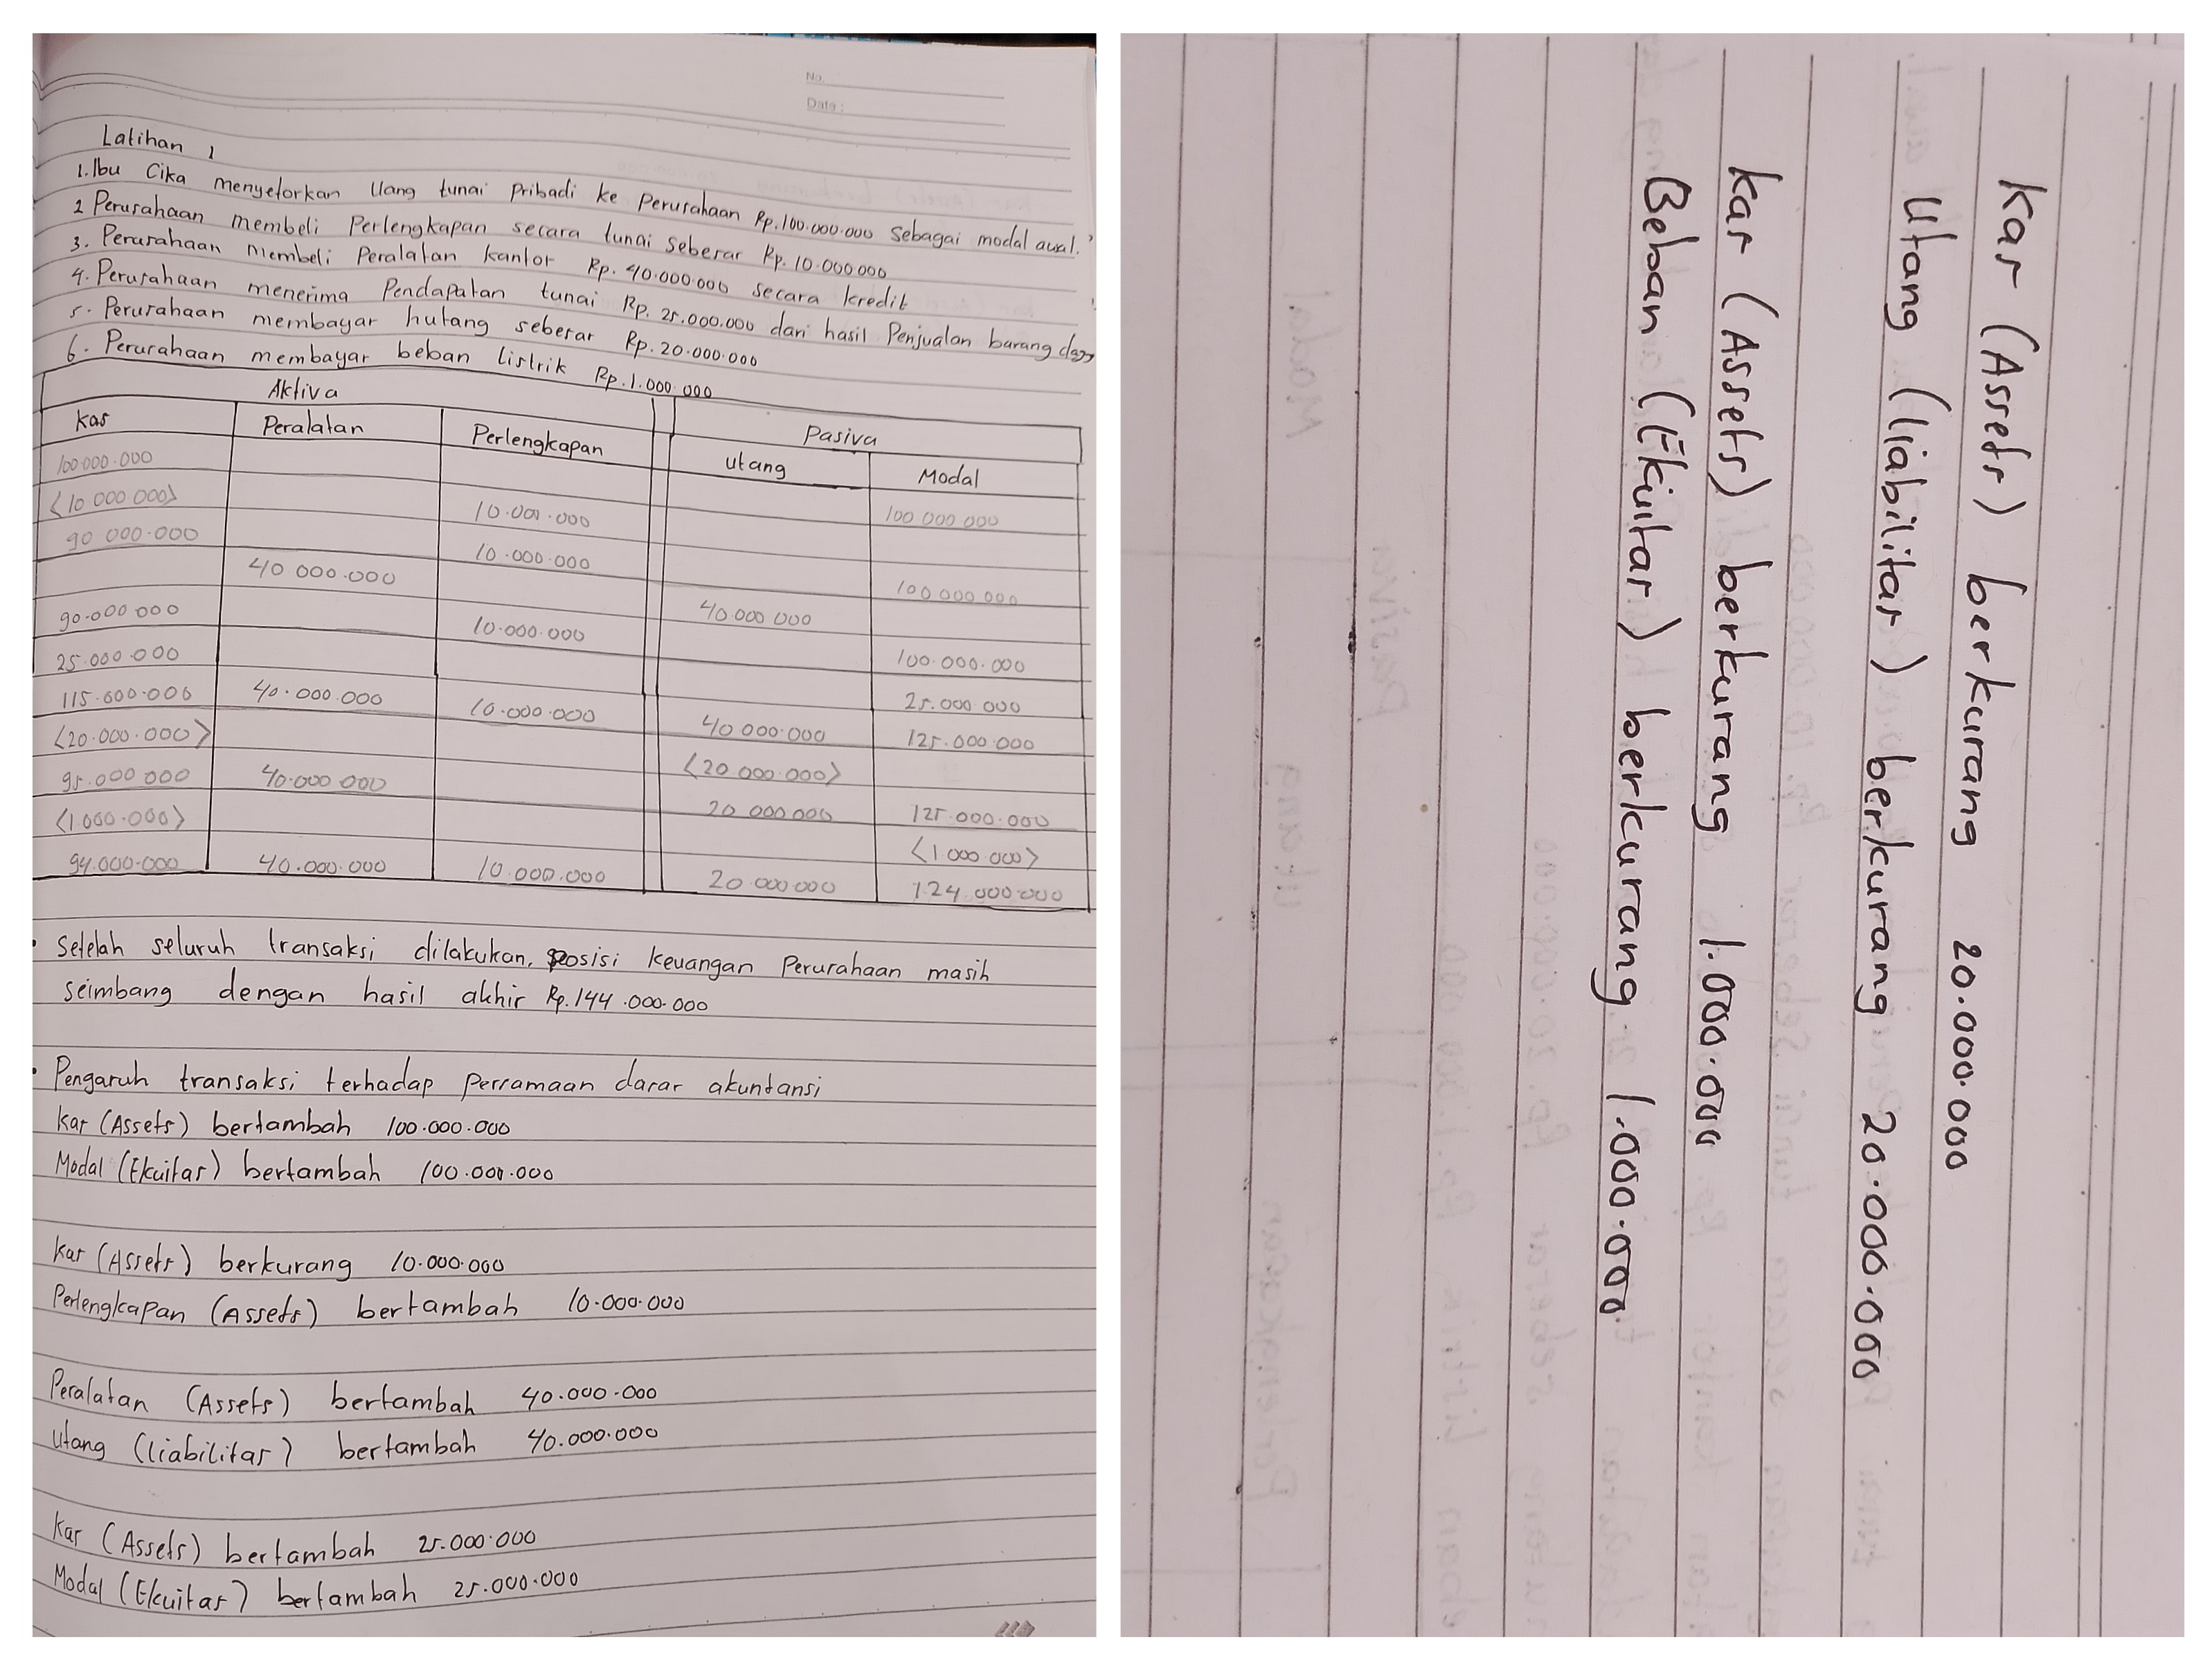 No.
Date :
Latihan 1
1. Ibu Cika menyetorkan Uang tunai Pribadi ke Perusahaan Rp.100.000.000 sebagai modal awal.
2 Perusahaan membeli Perlengkapan secara tunai sebesar Rp. 10.000.000
3. Perusahaan membeli Peralatan kantor Rp. 40.000.000 secara kredit
4. Perusahaan menerima Pendapatan tunai Rp. 25.000.000 dari hasil Penjualan barang dagg
5. Perusahaan membayar hutang sebesar Rp. 20.000.000
6. Perusahaan membayar beban listrik Rp. 1.000.000
Aktiva Pasiva
Kas Peralatan Perlengkapan utang Modal
100.000.000 100 000 000
<10 000 000> 10.000.000
90 000.000 10.000.000 100 000 000
40 000.000 40.000 000
90.000 000 10.000.000 100.000.000
25.000.000 25.000 000
115.000.000 40.000.000 10.000.000 40 000.000 125.000.000
<20.000.000> <20 000.000>
95.000 000 40.000 000 20 000 000 125.000.000
<1.000.000> <1 000.000>
94.000.000 40.000.000 10.000.000 20 000000 124.000.000
• Setelah seluruh transaksi dilakukan, posisi keuangan Perusahaan masih
seimbang dengan hasil akhir Rp.144.000.000
• Pengaruh transaksi terhadap persamaan dasar akuntansi
Kas (Assets) bertambah 100.000.000
Modal (Ekuitas) bertambah 100.000.000
Kas (Assets) berkurang 10.000.000
Perlengkapan (Assets) bertambah 10.000.000
Peralatan (Assets) bertambah 40.000.000
Utang (liabilitas) bertambah 40.000.000
Kas (Assets) bertambah 25.000.000
Modal (Ekuitas) bertambah 25.000.000
Kas (Assets) berkurang 20.000.000
Utang (liabilitas) berkurang 20.000.000
Kas (Assets) berkurang 1.000.000
Beban (Ekuitas) berkurang 1.000.000